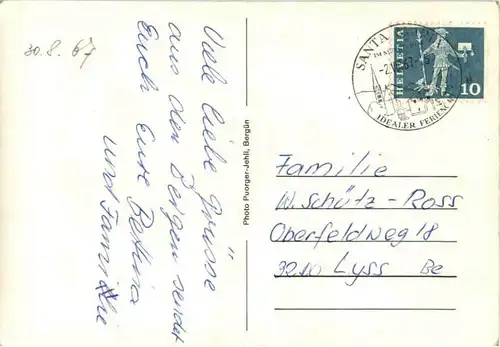 30.8.67
Viele liebe Grüsse
aus den Bergen sendet
Euch Eure Bettina
und Familie
Photo Puorger-Jehli, Bergün
SANTA
IDEALER FERIEN
HELVETIA
10
Familie
W. Schütz-Ross
Oberfeldweg 18
3210 Lyss Be